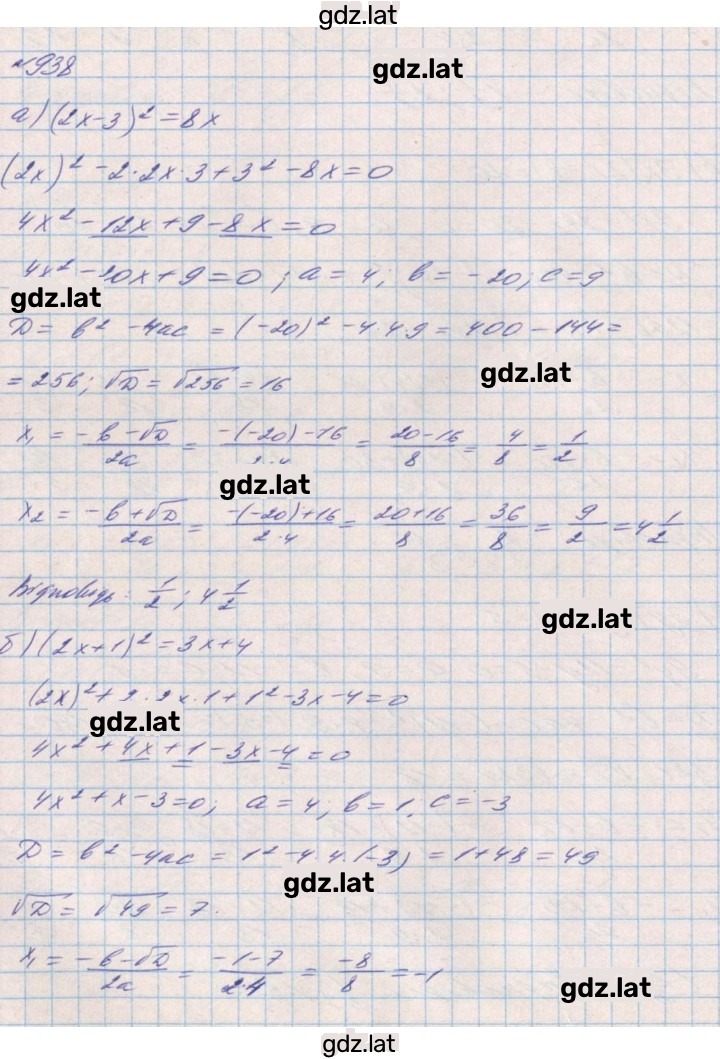 gdz.lat
№938
gdz.lat
а) (2x-3)² = 8x
(2x)² - 2·2x·3 + 3² - 8x = 0
4x² - 12x + 9 - 8x = 0
4x² - 20x + 9 = 0; a = 4; b = -20; c = 9
gdz.lat
D = b² - 4ac = (-20)² - 4·4·9 = 400 - 144 =
gdz.lat
= 256; √D = √256 = 16
x₁ = (-b-√D)/2a = (-(-20)-16)/2·4 = (20-16)/8 = 4/8 = 1/2
gdz.lat
x₂ = (-b+√D)/2a = (-(-20)+16)/2·4 = (20+16)/8 = 36/8 = 9/2 = 4 1/2
Відповідь: 1/2; 4 1/2
gdz.lat
б) (2x+1)² = 3x+4
(2x)² + 2·2x·1 + 1² - 3x - 4 = 0
gdz.lat
4x² + 4x + 1 - 3x - 4 = 0
4x² + x - 3 = 0; a = 4; b = 1; c = -3
D = b² - 4ac = 1² - 4·4·(-3) = 1 + 48 = 49
gdz.lat
√D = √49 = 7.
x₁ = (-b-√D)/2a = (-1-7)/2·4 = -8/8 = -1
gdz.lat
gdz.lat